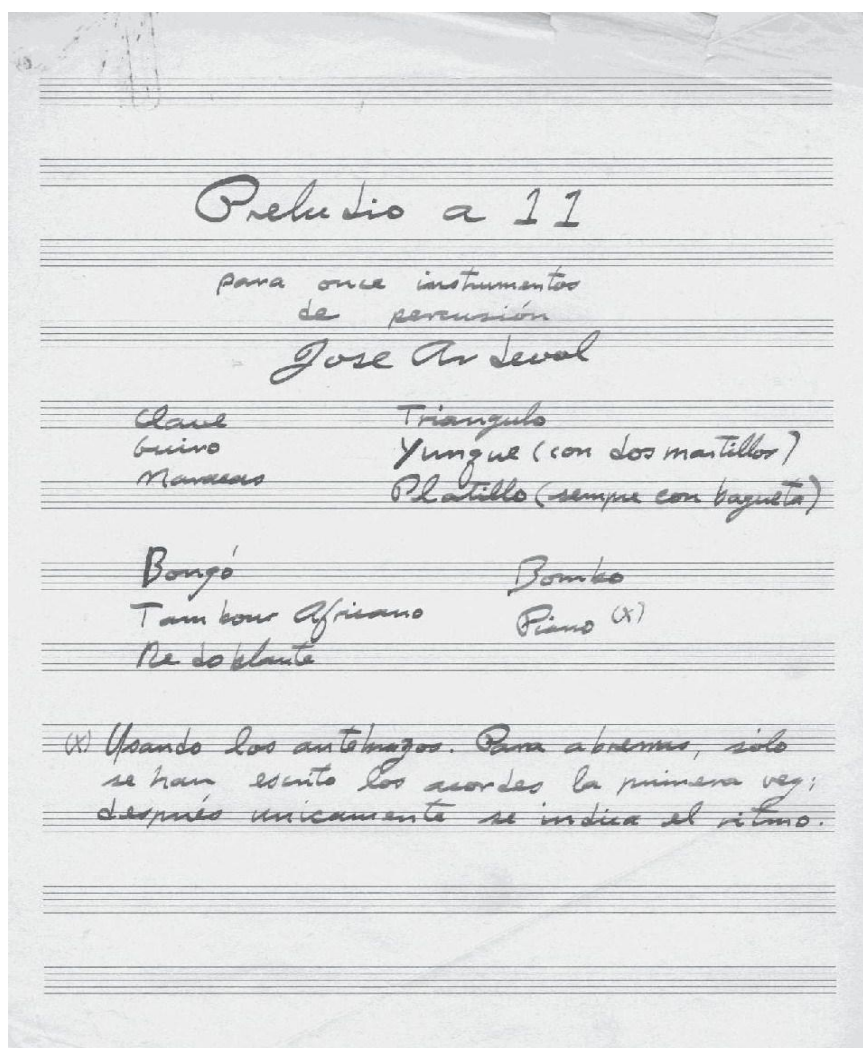 Preludio a 11
para once instrumentos
de percusión
Jose Ardevol
Clave
Guiro
Maracas
Triangulo
Yunque (con dos martillos)
Platillo (sempre con bagueta)
Bongó
Tambour Africano
Redoblante
Bombo
Piano (x)
(x) Usando los antebrazos. Para abreviar, sólo
se han escrito los acordes la primera vez;
después unicamente se indica el ritmo.